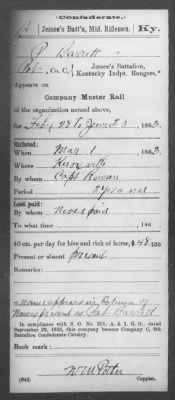 Confederate.
Jessee's Batt'n, Mtd. Riflemen. Ky.
P Barrett
Pvt, Co. C, Jessee's Battalion,
Kentucky Indpt. Rangers.
Appears on
Company Muster Roll
of the organization named above,
for Feby 28 to June 30, 1863.
Enlisted:
When Mar 1, 1863.
Where Knoxville
By whom Capt. Rowan
Period 2 years
Last paid:
By whom Never paid
To what time , 186
40 cts. per day for hire and risk of horse, $48.80
Present or absent present
Remarks:
Name appears in Column of
Names present as Pat Barrett
In compliance with S. O. No. 231, A. & I. G. O., dated
September 29, 1863, this company became Company C, 6th
Battalion Confederate Cavalry.
Book mark:
(642) Copyist.